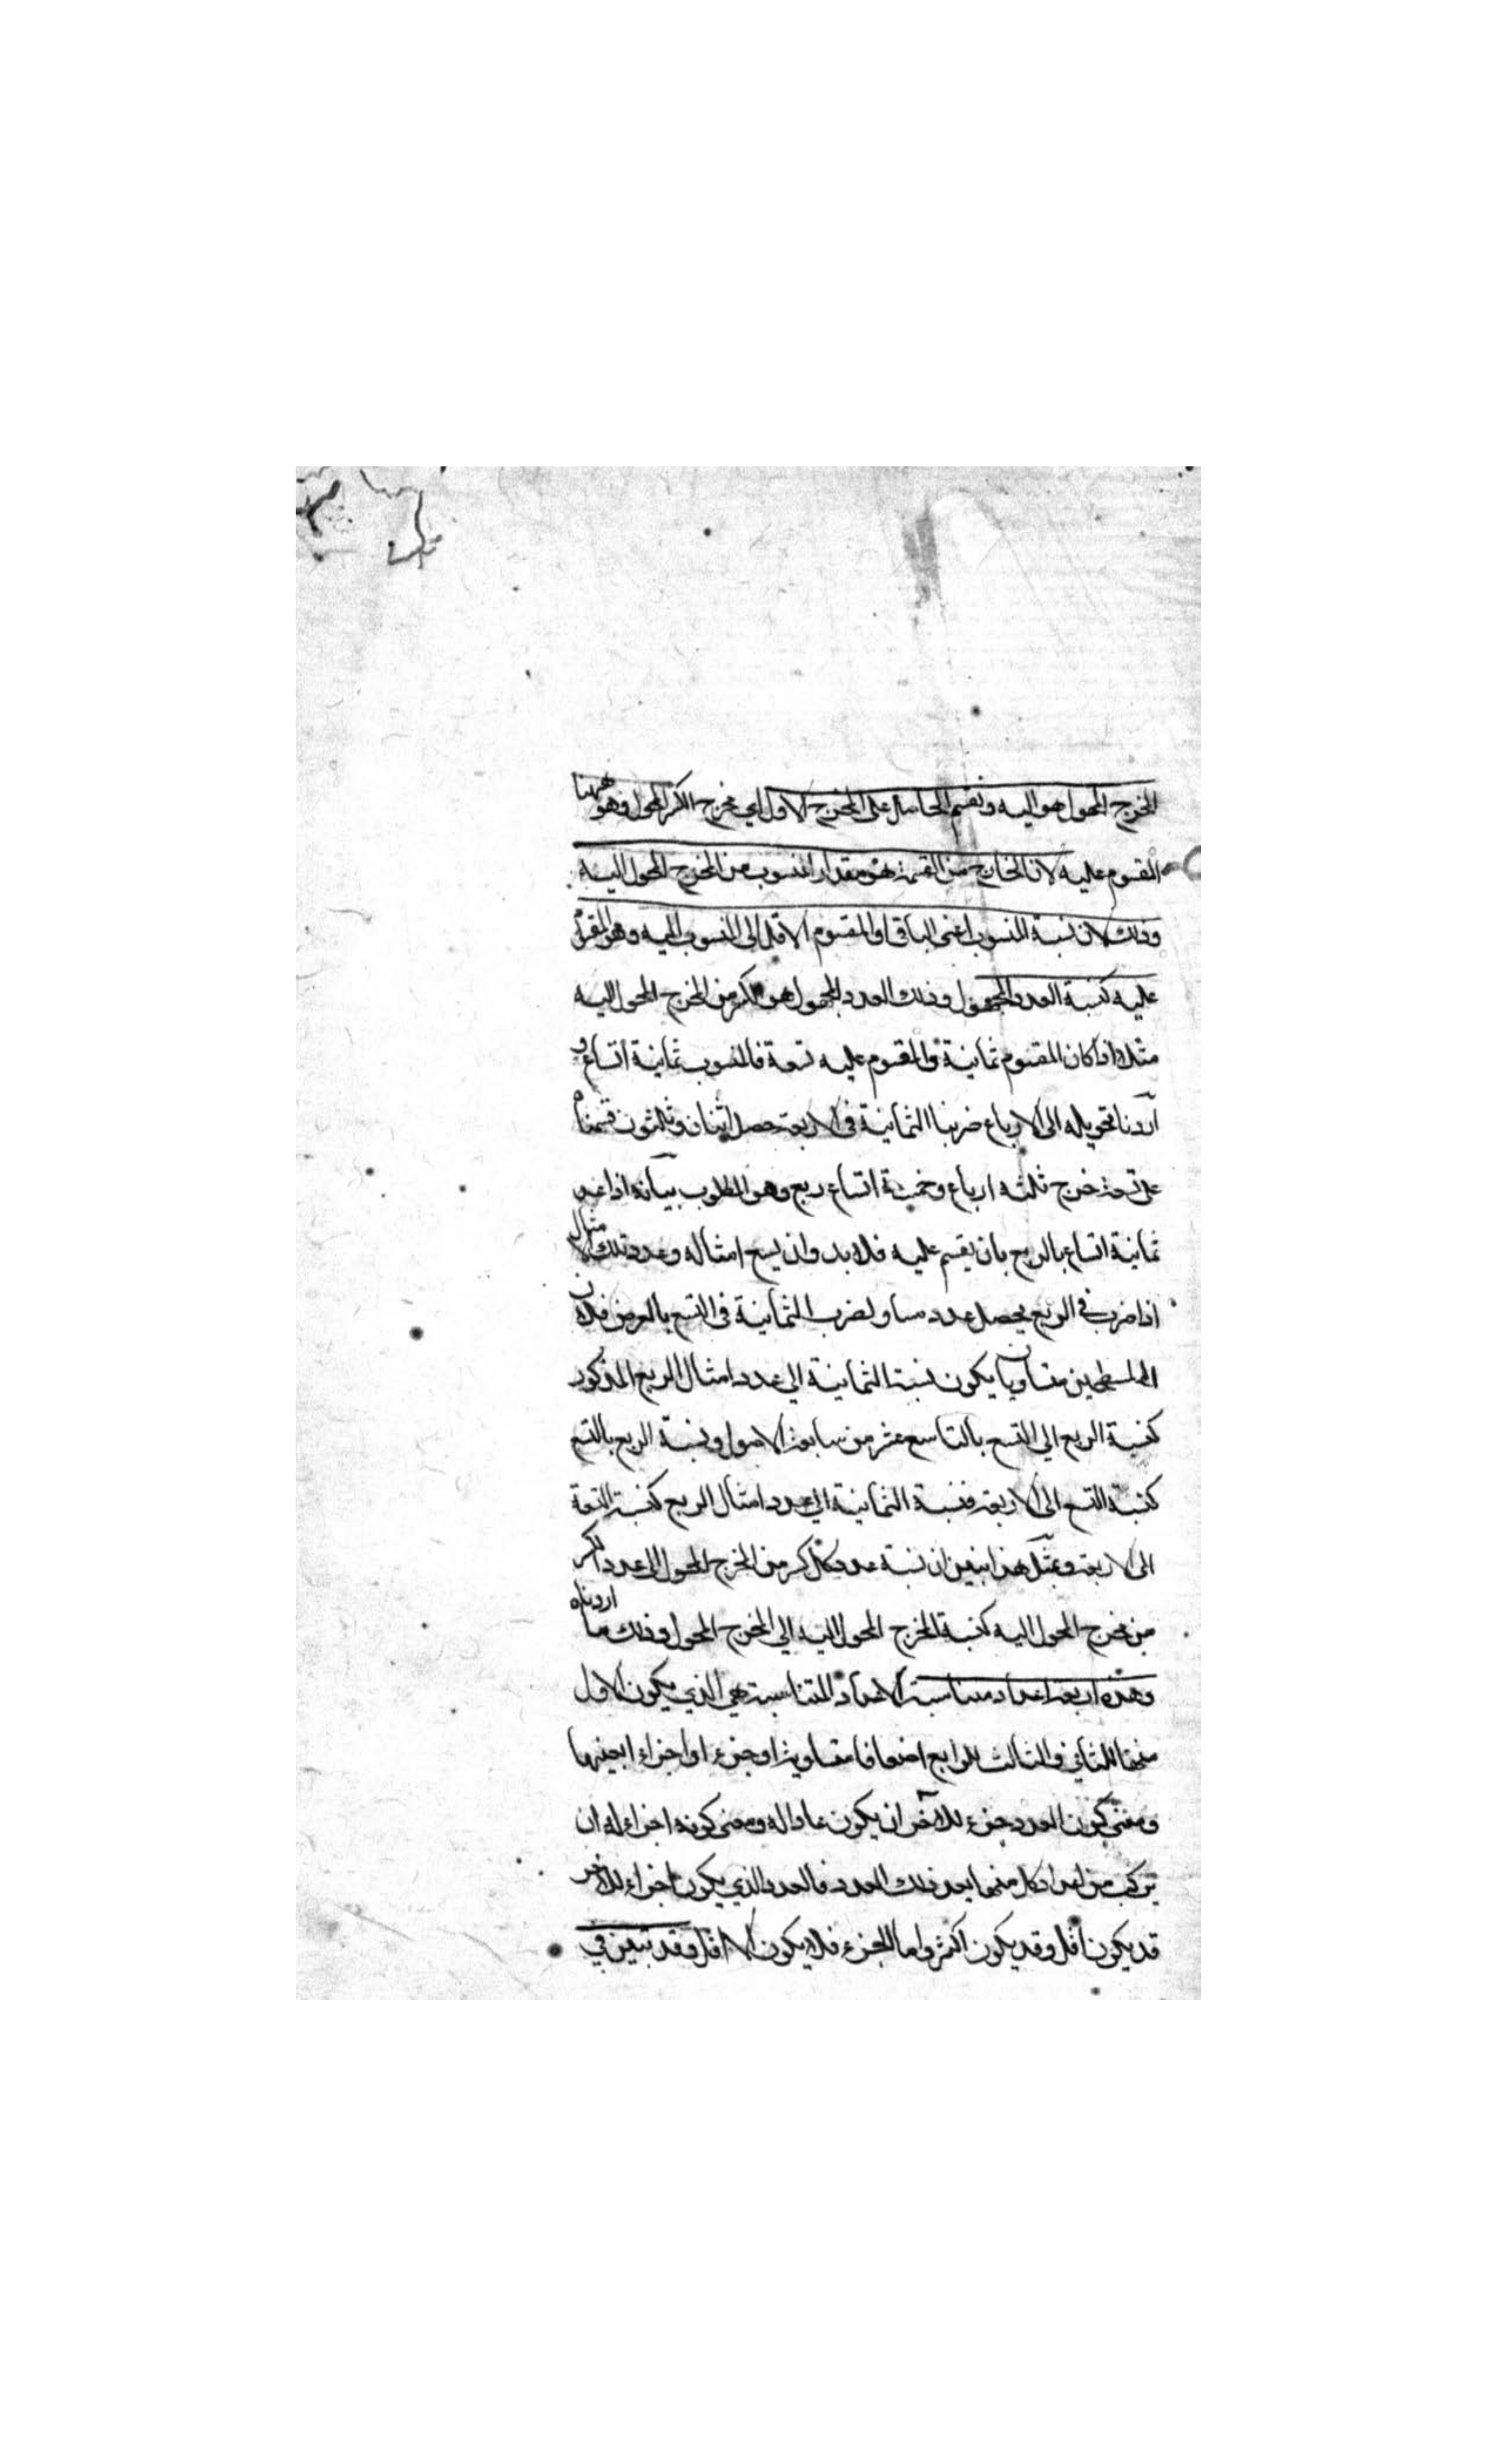 المخرج المحول هو اليه ونقسم الحاصل على المخرج الاول اي مخرج الكسر المحول وهو ههنا
المقسوم عليه لان الخارج من القسمة هو مقدار المنسوب من المخرج المحول اليه
وذلك لان نسبة المنسوب اعني الباقي او المقسوم الاقل الى المنسوب اليه وهو المقسوم
عليه كنسبة العدد المجهول وذلك العدد المجهول هو الكسر من المخرج المحول اليه
مثلا اذا كان المقسوم ثمانية والمقسوم عليه تسعة فالمنسوب ثمانية اتساع و
اردنا تحويله الى الارباع ضربنا الثمانية في الاربعة حصل اثنان وثلثون قسمناه
على تسعة خرج ثلثة ارباع وخمسة اتساع ربع وهو المطلوب بيانه اذا عد
ثمانية اتساع بالربع بان يقسم عليه فلا بد وان يسع امثاله وعدد تلك الامثال
اذا ضرب في الربع يحصل عدد مساو لضرب الثمانية في التسع بالعرض فلان
المسطحين متساويان يكون نسبة الثمانية الى عدد امثال الربع المذكور
كنسبة الربع الى التسع بالتاسع عشر من سابعة الاصول ونسبة الربع بالتسع
كنسبة التسع الى الاربعة فنسبة الثمانية الى عدد امثال الربع كنسبة التسعة
الى الاربعة وبمثل هذا تبين ان نسبة عدد كل كسر من المخرج المحول الى عدد الكسر
من مخرج المحول اليه كنسبة المخرج المحول اليه الى المخرج المحول وذلك ما اردناه
وهذه اربعة اعداد متناسبة الاعداد المتناسبة هي الذي يكون الاول
منها للثاني والثالث للرابع اضعافا متساوية او جزء او اجزاء بعينها
ومعنى كون العدد جزء للاخر ان يكون عادا له ومعنى كونه اجزاء له ان
يتركب من اعداد كل منها يعد ذلك العدد فالعدد الذي يكون اجزاء للاخر
قد يكون اقل وقد يكون اكثر واما الجزء فلا يكون الا اقل وقد تبين في